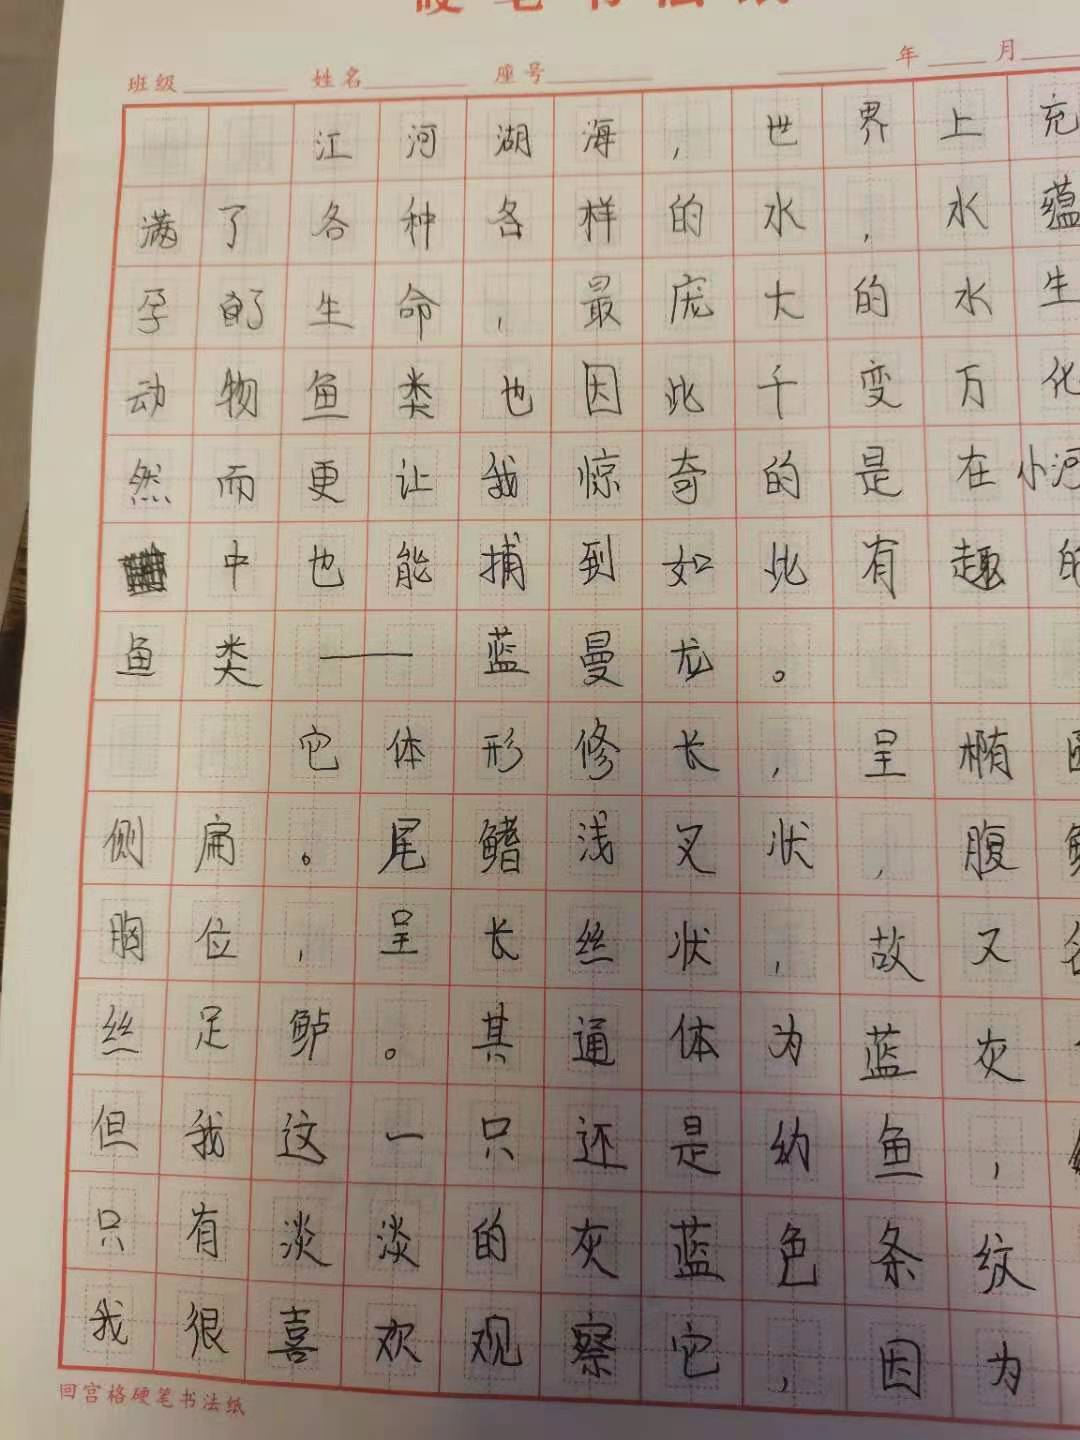 硬笔书法纸
班级 姓名 座号 年 月
江河湖海,世界上充
满了各种各样的水,水蕴
孕的了生命,最庞大的水生
动物鱼类也因此千变万化
然而更让我惊奇的是在小河
中也能捕到如此有趣的
鱼类——蓝曼龙。
它体形修长,呈椭
侧扁。尾鳍浅叉状,腹鳍
胸位,呈长丝状,故又名
丝足鲈。其通体为蓝灰
但我这一只还是幼鱼,
只有淡淡的灰蓝色条纹
我很喜欢观察它,因为
回宫格硬笔书法纸